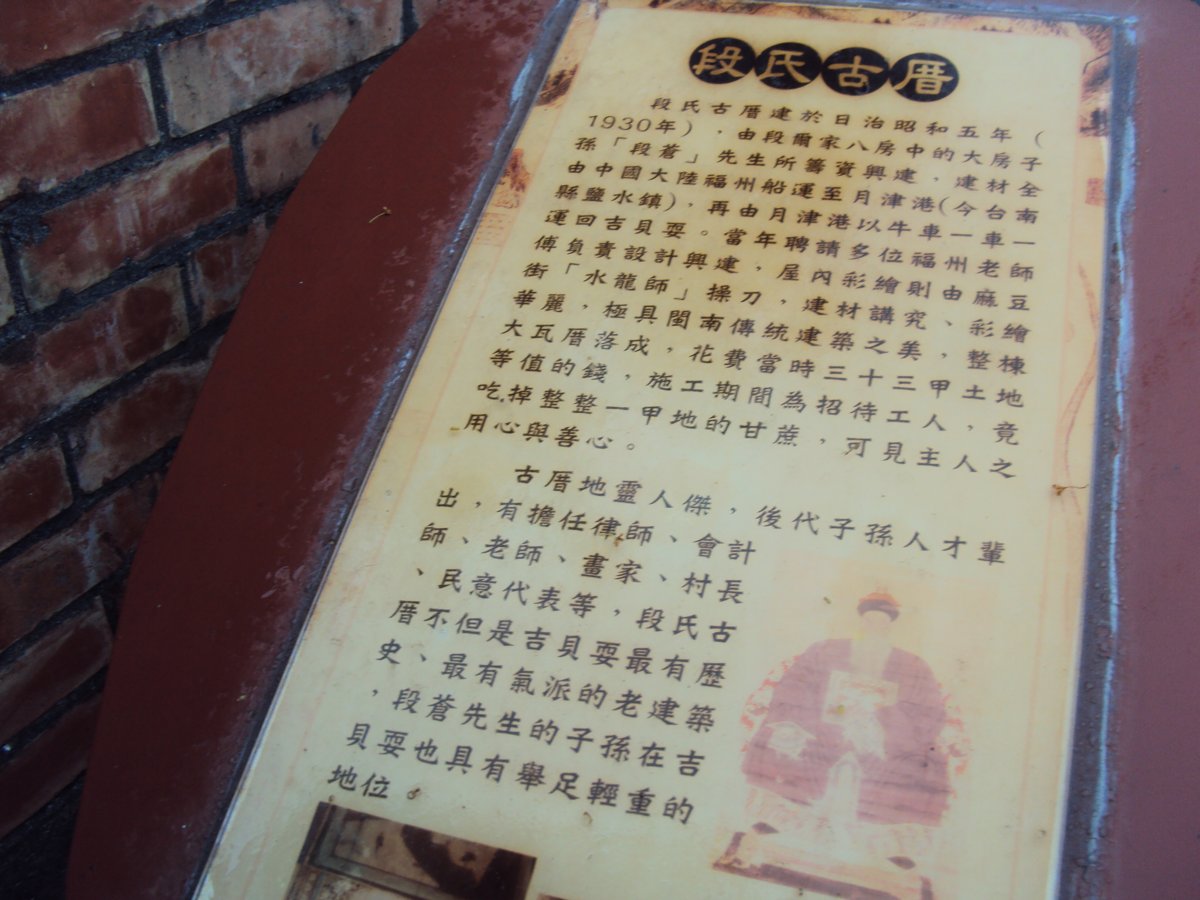 段氏古厝
段氏古厝建於日治昭和五年（
1930年），由段爾家八房中的大房子
孫「段蒼」先生所籌資興建，建材全
由中國大陸福州船運至月津港(今台南
縣鹽水鎮)，再由月津港以牛車一車一
運回吉貝耍。當年聘請多位福州老師
傅負責設計興建，屋內彩繪則由麻豆
街「水龍師」操刀，建材講究、彩繪
華麗，極具閩南傳統建築之美，整棟
大瓦厝落成，花費當時三十三甲土地
等值的錢，施工期間為招待工人，竟
吃掉整整一甲地的甘蔗，可見主人之
用心與善心。
古厝地靈人傑，後代子孫人才輩
出，有擔任律師、會計
師、老師、畫家、村長
、民意代表等，段氏古
厝不但是吉貝耍最有歷
史、最有氣派的老建築
，段蒼先生的子孫在吉
貝耍也具有舉足輕重的
地位。